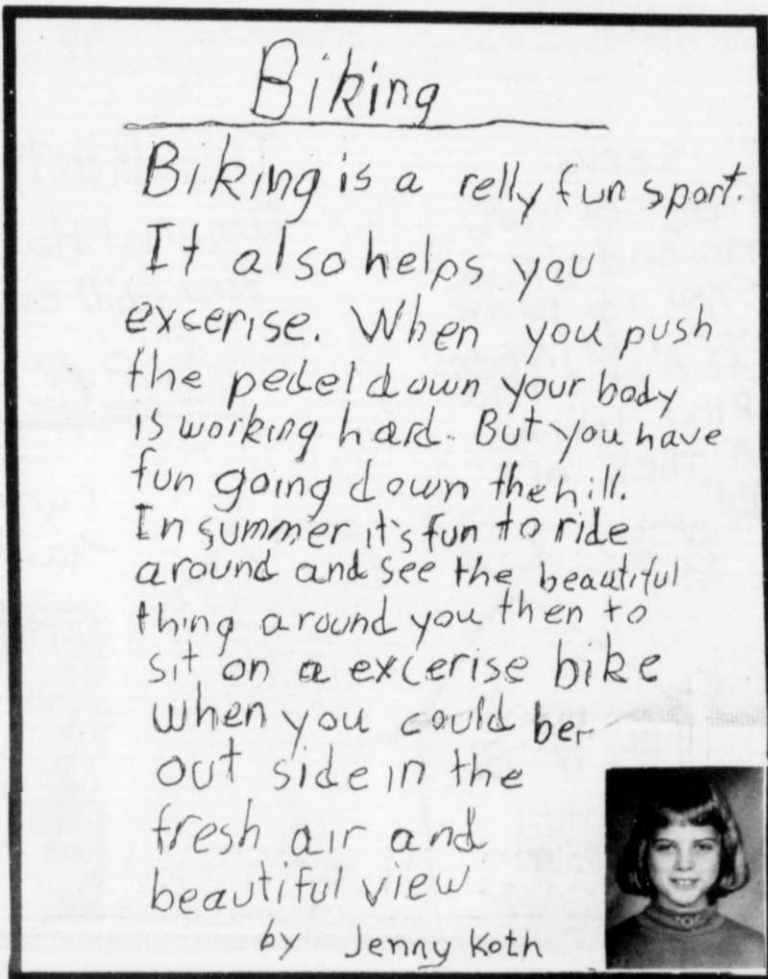 Biking
Biking is a relly fun sport.
It also helps you
excerise. When you push
the pedel down your body
is working hard. But you have
fun going down the hill.
In summer it's fun to ride
around and see the beautiful
thing around you then to
sit on a excerise bike
when you could be
out side in the
fresh air and
beautiful view
by Jenny Koth